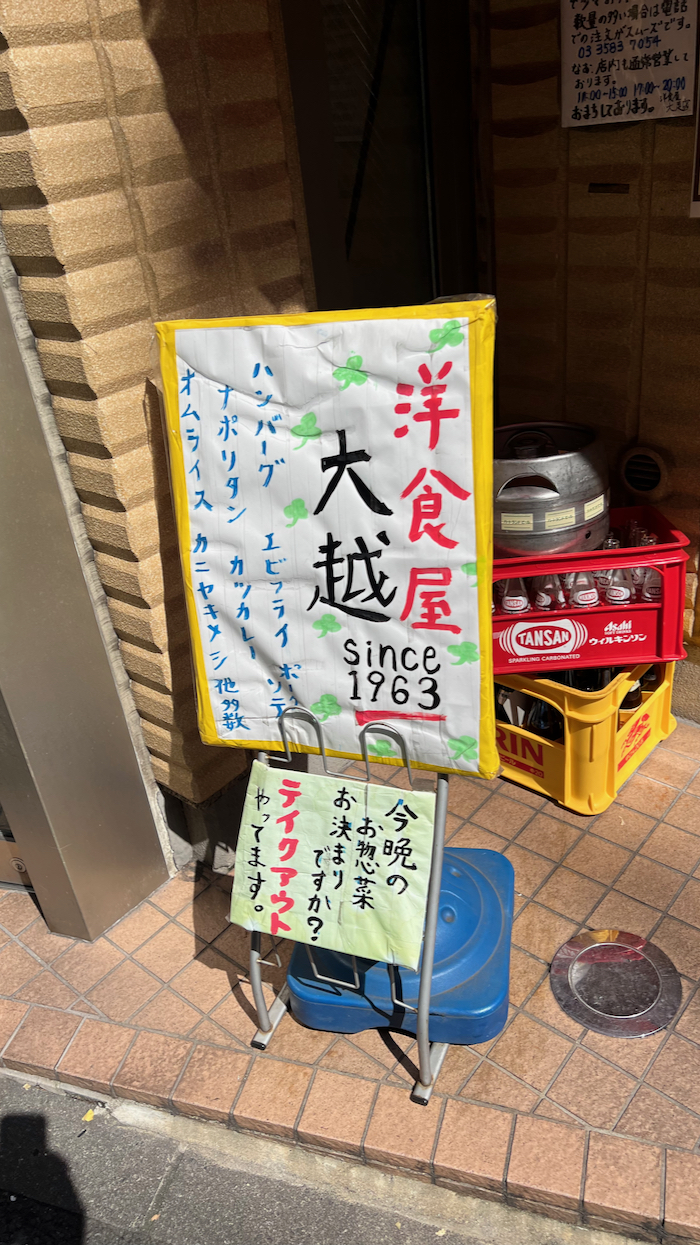 軟量の多い場合は電話
での注文がスムーズです。
03 3583 7054
なお、店内も通常営業して
おります。
11:00-15:00 17:00-20:00
おまちしております。
洋食屋
大越
since
1963
ハンバーグ エビフライ
ナポリタン カツカレー ソテ
オムライス カニヤキメシ 他多数
今晩の
お惣菜
お決まり
ですか?
テイクアウト
やってます。
TANSAN
SPARKLING CARBONATED
Asahi
ウィルキンソン